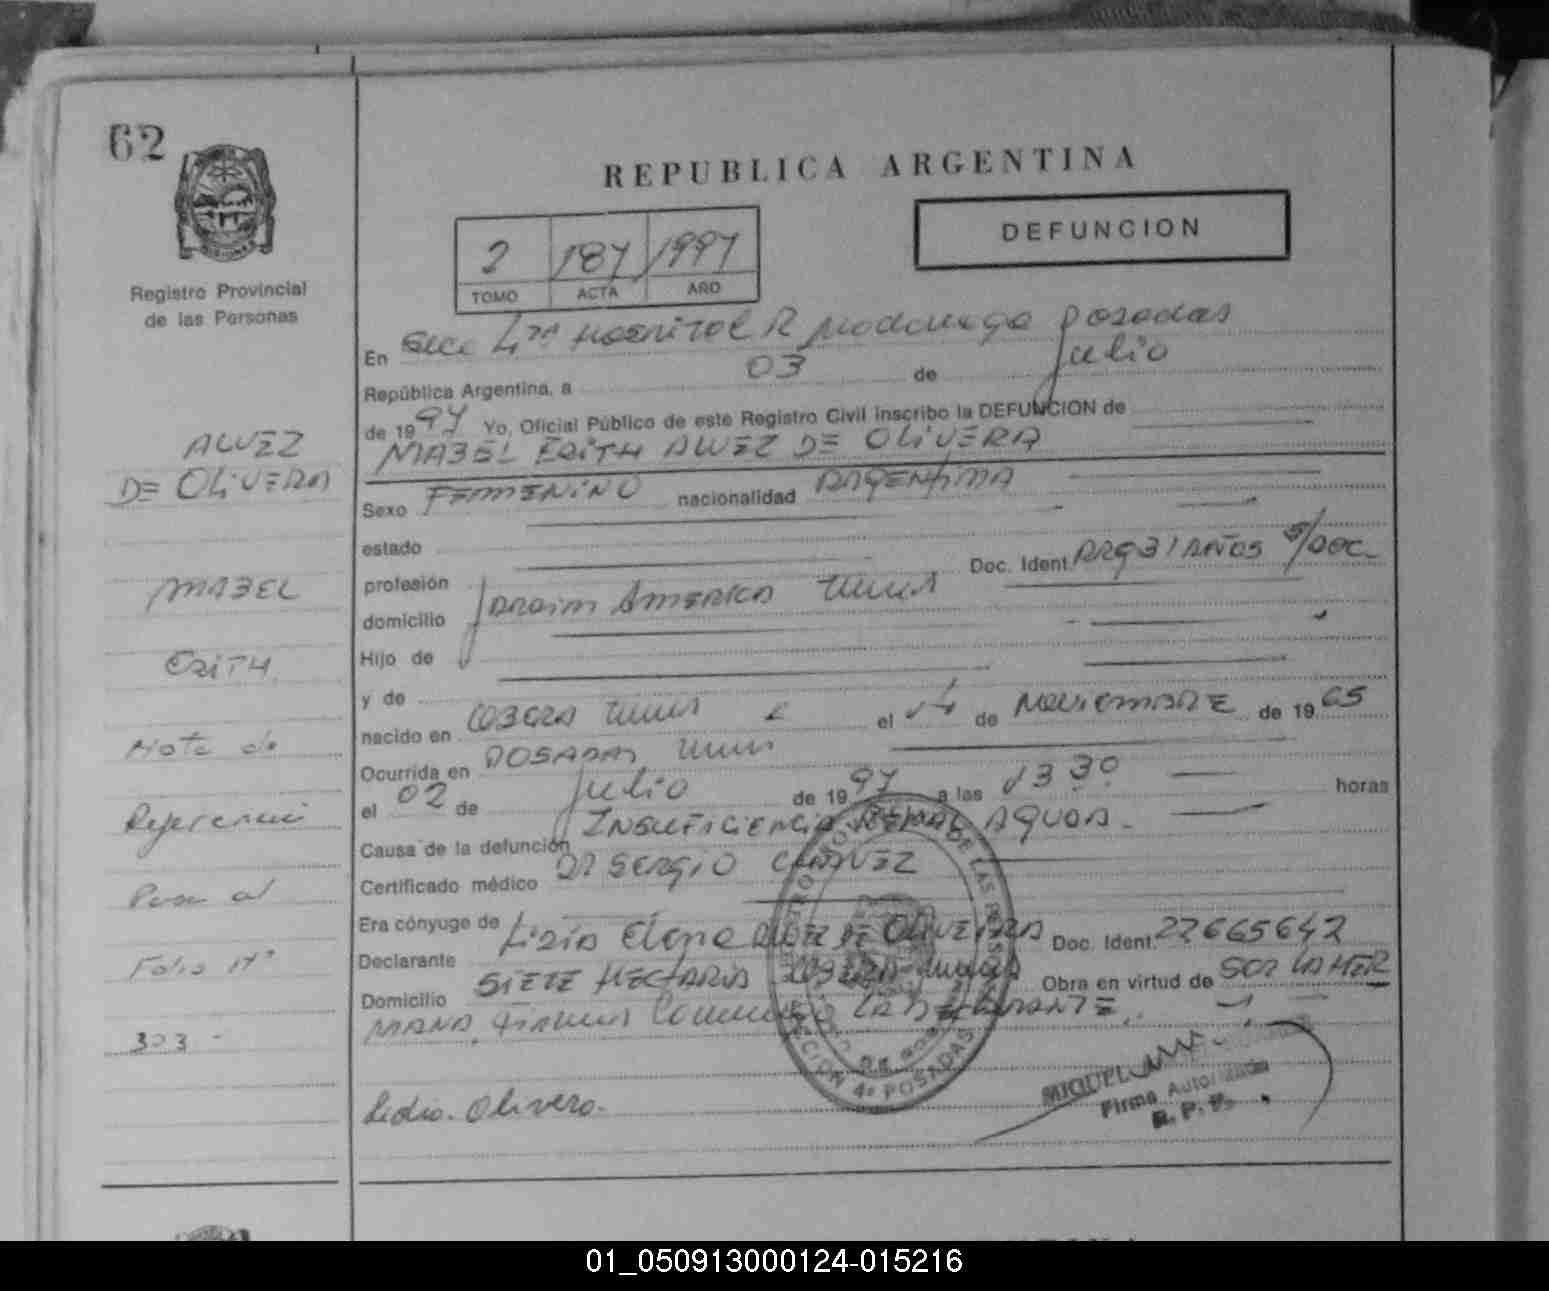 62
REPUBLICA ARGENTINA
DEFUNCION
2 187 1997
TOMO ACTA AÑO
Registro Provincial
de las Personas
ALVEZ
DE OLIVERA
MABEL
EDITH
Nota de
Referencia
Pasa al
Folio Nº
303 -
En Secc 4ta Hospital R Madariaga Posadas
República Argentina, a 03 de Julio
de 1997 Yo, Oficial Público de este Registro Civil inscribo la DEFUNCION de
MABEL EDITH ALVEZ DE OLIVERA
Sexo FEMENINO nacionalidad ARGENTINA
estado
profesión Doc. Ident. ARG 31 AÑOS S/DOC.
domicilio JARDIN AMERICA
Hijo de
y de
nacido en OBERA el de NOVIEMBRE de 1965
Ocurrida en POSADAS
el 02 de Julio de 1997 a las 13 30 horas
Causa de la defunción INSUFICIENCIA RENAL AGUDA.
Certificado médico DR SERGIO
Era cónyuge de
Declarante Lidia Elena ALVEZ DE OLIVEIRA Doc. Ident. 22665642
Domicilio SIETE HECTAREAS OBERA Obra en virtud de SER LA HER
MANA, LA DECLARANTE.
REGISTRO PROVINCIAL DE LAS PERSONAS
SECCION 4ª POSADAS
Lidia. Olivera.
MIGUEL
Firma Autorizada
R. P. P.
01_050913000124-015216